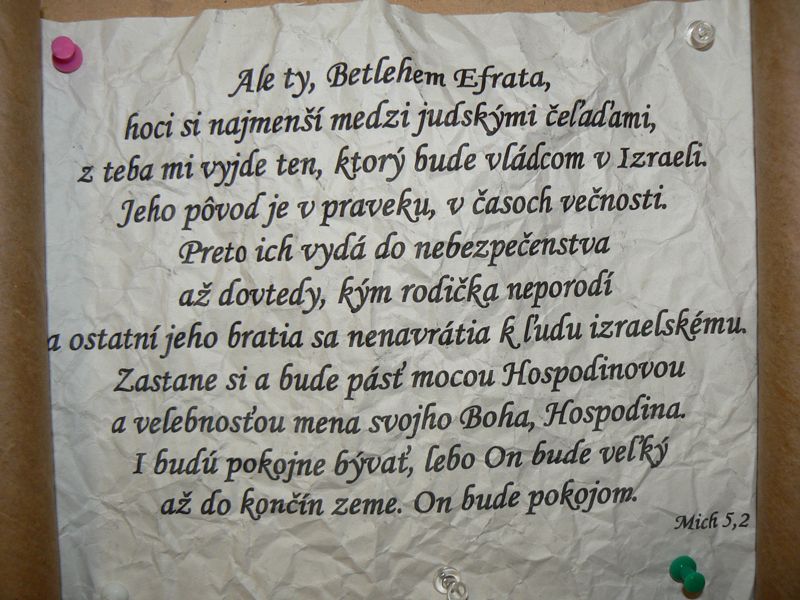 Ale ty, Betlehem Efrata,
hoci si najmenší medzi judskými čeľaďami,
z teba mi vyjde ten, ktorý bude vládcom v Izraeli.
Jeho pôvod je v praveku, v časoch večnosti.
Preto ich vydá do nebezpečenstva
až dovtedy, kým rodička neporodí
a ostatní jeho bratia sa nenavrátia k ľudu izraelskému.
Zastane si a bude pásť mocou Hospodinovou
a velebnosťou mena svojho Boha, Hospodina.
I budú pokojne bývať, lebo On bude veľký
až do končín zeme. On bude pokojom.
Mich 5,2